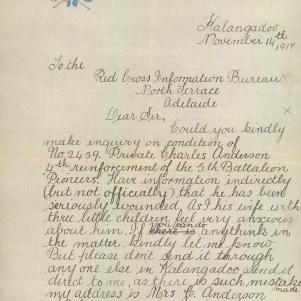 Kalangadoo
November 14th 1917
To the
Red Cross Information Bureau
North Terrace
Adelaide
Dear Sir,
Could you kindly
make inquiry on condition of
No 2459. Private Charles Anderson
4th reinforcement of the 5th Battalion
Pioneers. Have information indirectly
(but not officially) that he has been
seriously wounded, As I his wife with
three little children feel very anxious
about him. If you can do there is anything in
the matter kindly let me know
But please don't send it through
any one else in Kalangadoo send it
direct to me, as there is such mistakes made
my address is Mrs C. Anderson